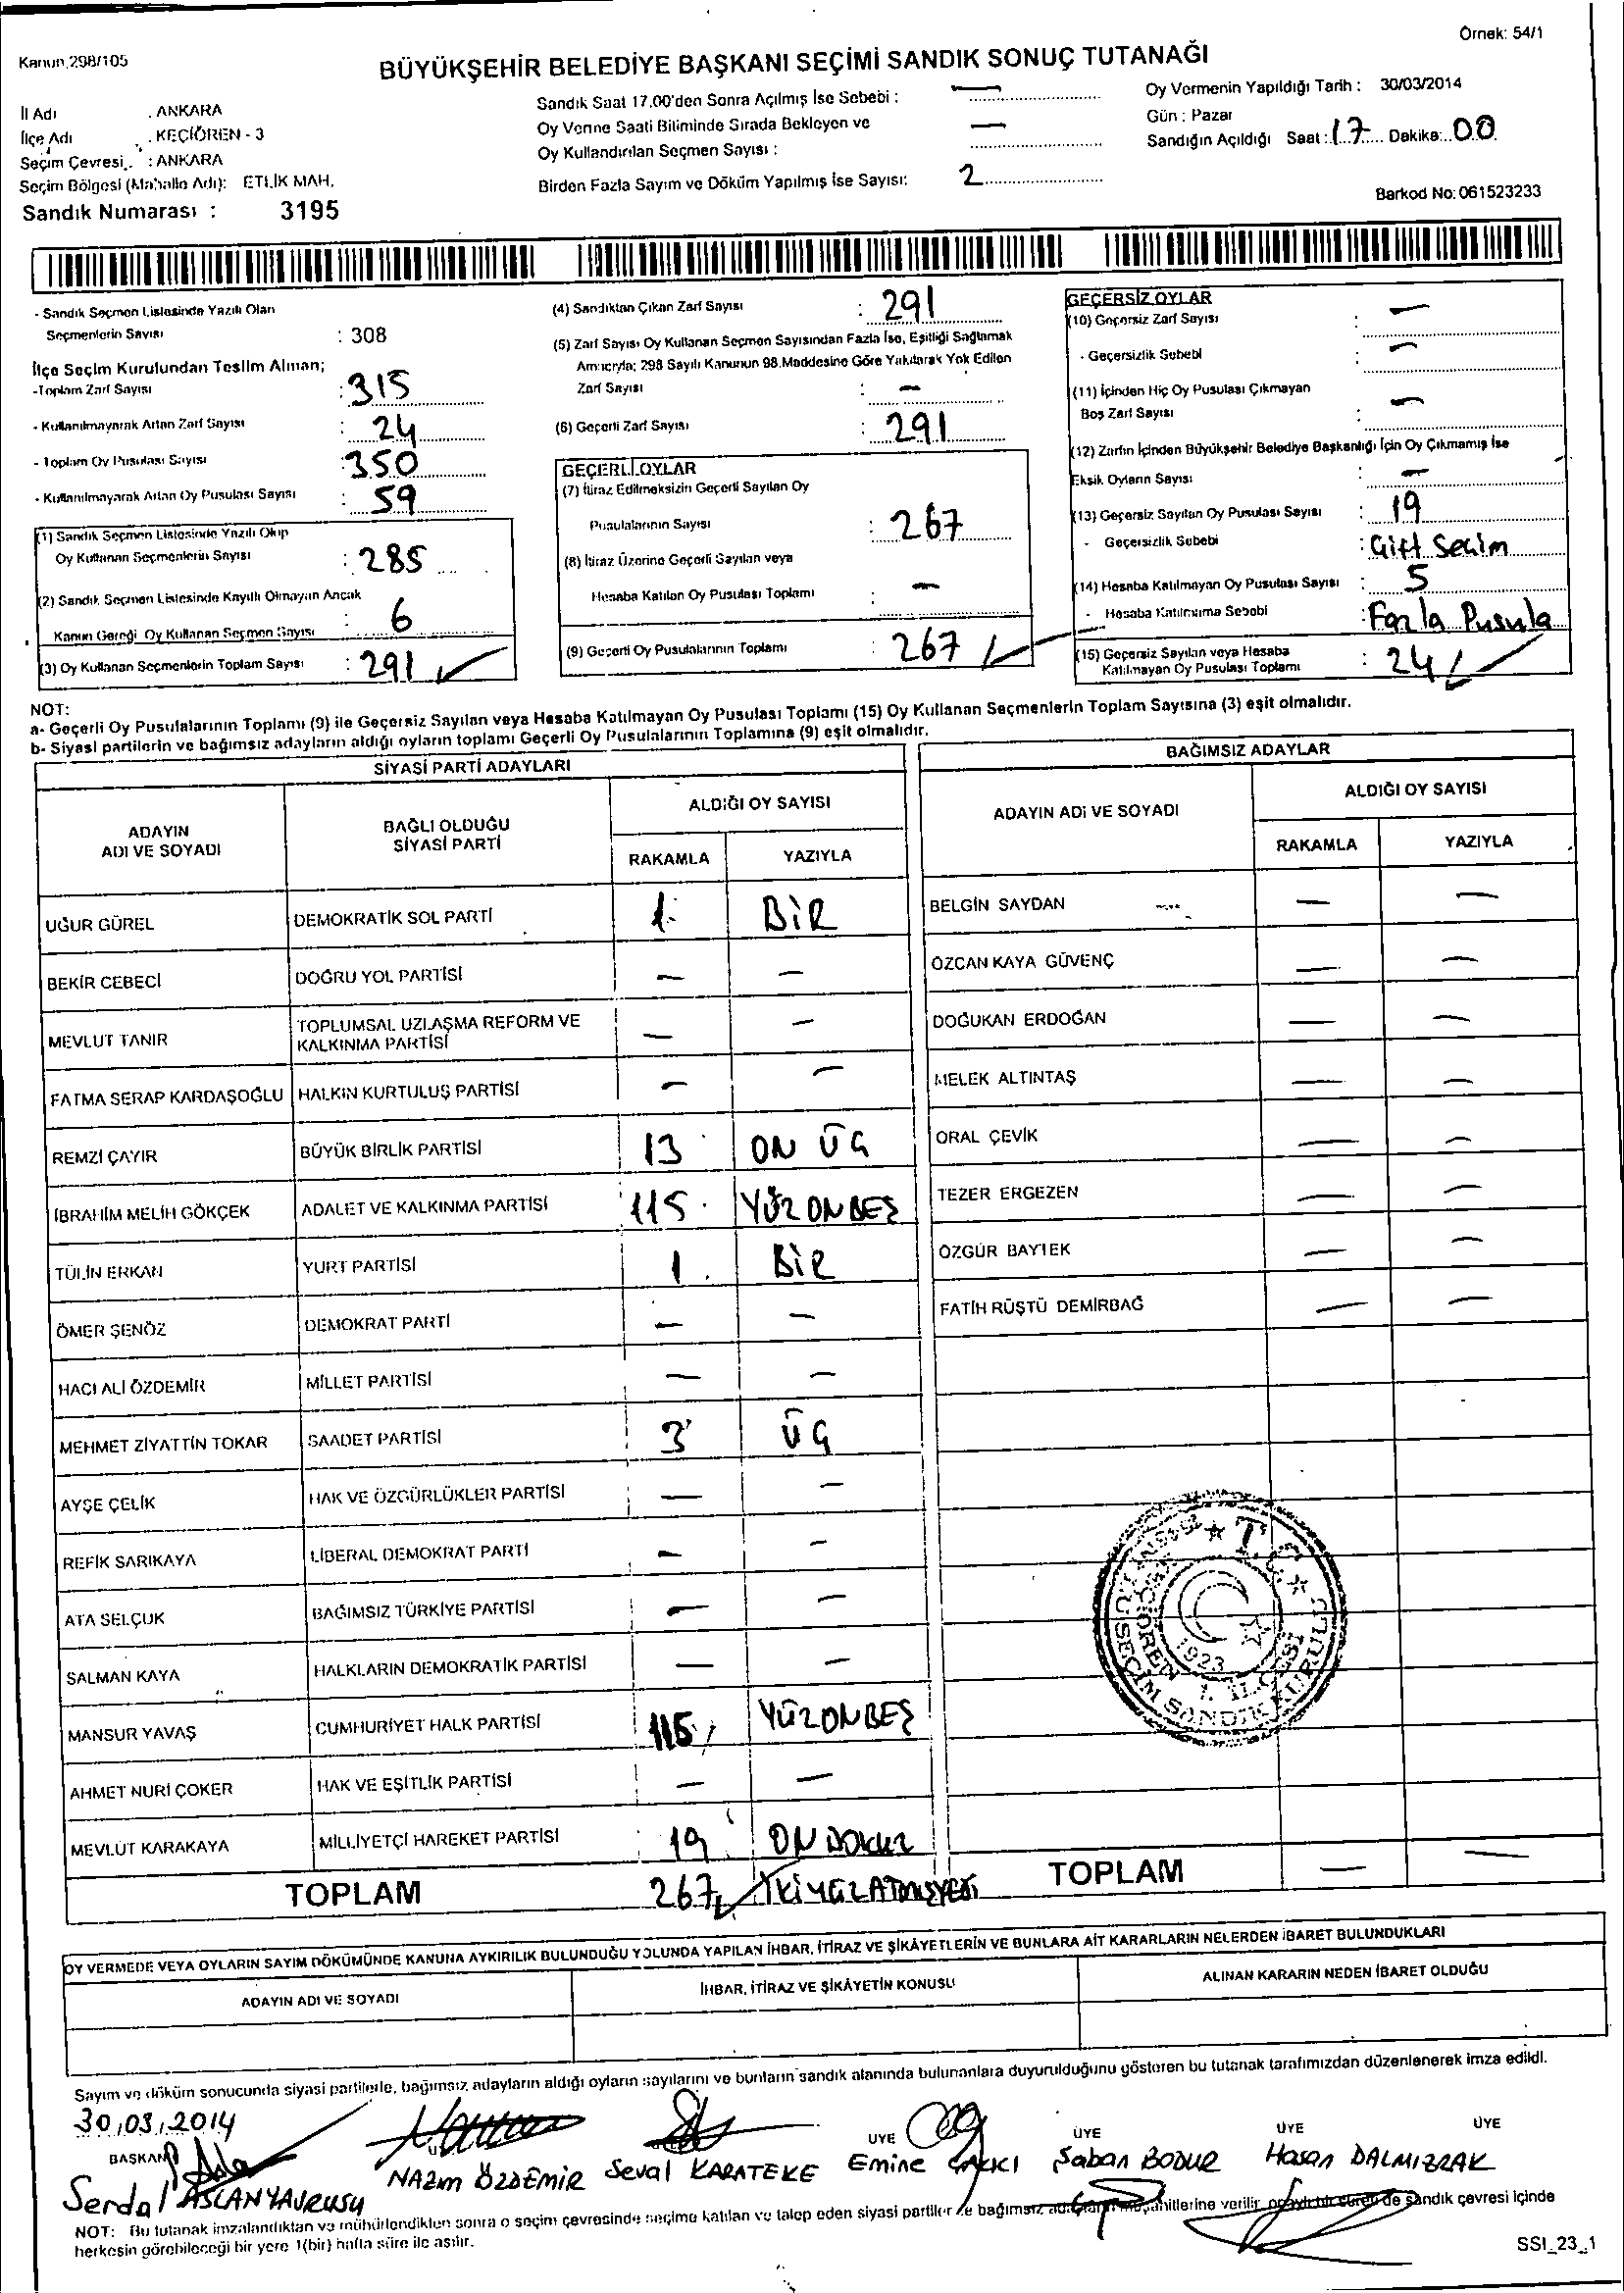 Örnek: 54/1
Kanun 298/105
BÜYÜKŞEHİR BELEDİYE BAŞKANI SEÇİMİ SANDIK SONUÇ TUTANAĞI
İl Adı : ANKARA
İlçe Adı : KEÇİÖREN - 3
Seçim Çevresi : ANKARA
Seçim Bölgesi (Mahalle Adı): ETLİK MAH.
Sandık Numarası : 3195
Sandık Saat 17.00'den Sonra Açılmış İse Sebebi : —
Oy Verme Saati Bitiminde Sırada Bekleyen ve
Oy Kullandırılan Seçmen Sayısı : —
Birden Fazla Sayım ve Döküm Yapılmış İse Sayısı: 2
Oy Vermenin Yapıldığı Tarih : 30/03/2014
Gün : Pazar
Sandığın Açıldığı Saat : 17 Dakika: 00
Barkod No: 061523233
- Sandık Seçmen Listesinde Yazılı Olan
Seçmenlerin Sayısı : 308
İlçe Seçim Kurulundan Teslim Alınan;
-Toplam Zarf Sayısı : 315
- Kullanılmayarak Artan Zarf Sayısı : 24
- Toplam Oy Pusulası Sayısı : 350
- Kullanılmayarak Artan Oy Pusulası Sayısı : 59
(1) Sandık Seçmen Listesinde Yazılı Olup
Oy Kullanan Seçmenlerin Sayısı : 285
(2) Sandık Seçmen Listesinde Kayıtlı Olmayan Ancak
Kanun Gereği Oy Kullanan Seçmen Sayısı : 6
(3) Oy Kullanan Seçmenlerin Toplam Sayısı : 291
(4) Sandıktan Çıkan Zarf Sayısı : 291
(5) Zarf Sayısı Oy Kullanan Seçmen Sayısından Fazla İse, Eşitliği Sağlamak
Amacıyla; 298 Sayılı Kanunun 98.Maddesine Göre Yakılarak Yok Edilen
Zarf Sayısı : —
(6) Geçerli Zarf Sayısı : 291
GEÇERLİ OYLAR
(7) İtiraz Edilmeksizin Geçerli Sayılan Oy
Pusulalarının Sayısı : 267
(8) İtiraz Üzerine Geçerli Sayılan veya
Hesaba Katılan Oy Pusulası Toplamı : —
(9) Geçerli Oy Pusulalarının Toplamı : 267
GEÇERSİZ OYLAR
(10) Geçersiz Zarf Sayısı : —
- Geçersizlik Sebebi : —
(11) İçinden Hiç Oy Pusulası Çıkmayan
Boş Zarf Sayısı : —
(12) Zarfın İçinden Büyükşehir Belediye Başkanlığı İçin Oy Çıkmamış İse
Eksik Oyların Sayısı : —
(13) Geçersiz Sayılan Oy Pusulası Sayısı : 19
- Geçersizlik Sebebi : Çift Seçim
(14) Hesaba Katılmayan Oy Pusulası Sayısı : 5
- Hesaba Katılmama Sebebi : Fazla Pusula
(15) Geçersiz Sayılan veya Hesaba
Katılmayan Oy Pusulası Toplamı : 24
NOT:
a- Geçerli Oy Pusulalarının Toplamı (9) ile Geçersiz Sayılan veya Hesaba Katılmayan Oy Pusulası Toplamı (15) Oy Kullanan Seçmenlerin Toplam Sayısına (3) eşit olmalıdır.
b- Siyasi partilerin ve bağımsız adayların aldığı oyların toplamı Geçerli Oy Pusulalarının Toplamına (9) eşit olmalıdır.
SİYASİ PARTİ ADAYLARI
ADAYIN ADI VE SOYADI
BAĞLI OLDUĞU SİYASİ PARTİ
ALDIĞI OY SAYISI
RAKAMLA YAZIYLA
UĞUR GÜREL DEMOKRATİK SOL PARTİ 1 BİR
BEKİR CEBECİ DOĞRU YOL PARTİSİ — —
MEVLUT TANIR TOPLUMSAL UZLAŞMA REFORM VE KALKINMA PARTİSİ — —
FATMA SERAP KARDAŞOĞLU HALKIN KURTULUŞ PARTİSİ — —
REMZİ ÇAYIR BÜYÜK BİRLİK PARTİSİ 13 ON ÜÇ
İBRAHİM MELİH GÖKÇEK ADALET VE KALKINMA PARTİSİ 115 YÜZONBEŞ
TÜLİN ERKAN YURT PARTİSİ 1 BİR
ÖMER ŞENÖZ DEMOKRAT PARTİ — —
HACI ALİ ÖZDEMİR MİLLET PARTİSİ — —
MEHMET ZİYATTİN TOKAR SAADET PARTİSİ 3 ÜÇ
AYŞE ÇELİK HAK VE ÖZGÜRLÜKLER PARTİSİ — —
REFİK SARIKAYA LİBERAL DEMOKRAT PARTİ — —
ATA SELÇUK BAĞIMSIZ TÜRKİYE PARTİSİ — —
SALMAN KAYA HALKLARIN DEMOKRATİK PARTİSİ — —
MANSUR YAVAŞ CUMHURİYET HALK PARTİSİ 115 YÜZONBEŞ
AHMET NURİ ÇOKER HAK VE EŞİTLİK PARTİSİ — —
MEVLÜT KARAKAYA MİLLİYETÇİ HAREKET PARTİSİ 19 ON DOKUZ
TOPLAM 267 İKİYÜZATMIŞYEDİ
BAĞIMSIZ ADAYLAR
ADAYIN ADI VE SOYADI
ALDIĞI OY SAYISI
RAKAMLA YAZIYLA
BELGİN SAYDAN — —
ÖZCAN KAYA GÜVENÇ — —
DOĞUKAN ERDOĞAN — —
MELEK ALTINTAŞ — —
ORAL ÇEVİK — —
TEZER ERGEZEN — —
ÖZGÜR BAYTEK — —
FATİH RÜŞTÜ DEMİRBAĞ — —
T.C.
1923
TOPLAM — —
OY VERMEDE VEYA OYLARIN SAYIM DÖKÜMÜNDE KANUNA AYKIRILIK BULUNDUĞU YOLUNDA YAPILAN İHBAR, İTİRAZ VE ŞİKÂYETLERİN VE BUNLARA AİT KARARLARIN NELERDEN İBARET BULUNDUKLARI
ADAYIN ADI VE SOYADI
İHBAR, İTİRAZ VE ŞİKÂYETİN KONUSU
ALINAN KARARIN NEDEN İBARET OLDUĞU
Sayım ve döküm sonucunda siyasi partilerle, bağımsız adayların aldığı oyların sayılarını ve bunların sandık alanında bulunanlara duyurulduğunu gösteren bu tutanak tarafımızdan düzenlenerek imza edildi.
30.03.2014
BAŞKAN ÜYE ÜYE ÜYE ÜYE
Serdal ASLANYAVRUSU
NAZIM ÖZDEMİR
Seval KARATEKE
Emine ÇAKICI
Şaban BODUR
Hasan DALMIZRAK
NOT: Bu tutanak imzalandıktan ve mühürlendikten sonra o seçim çevresinde seçime katılan ve talep eden siyasi partiler ile bağımsız müşahitlerine verilir, sandık çevresi içinde
herkesin görebileceği bir yere 1(bir) hafta süre ile asılır.
SSI_23_1